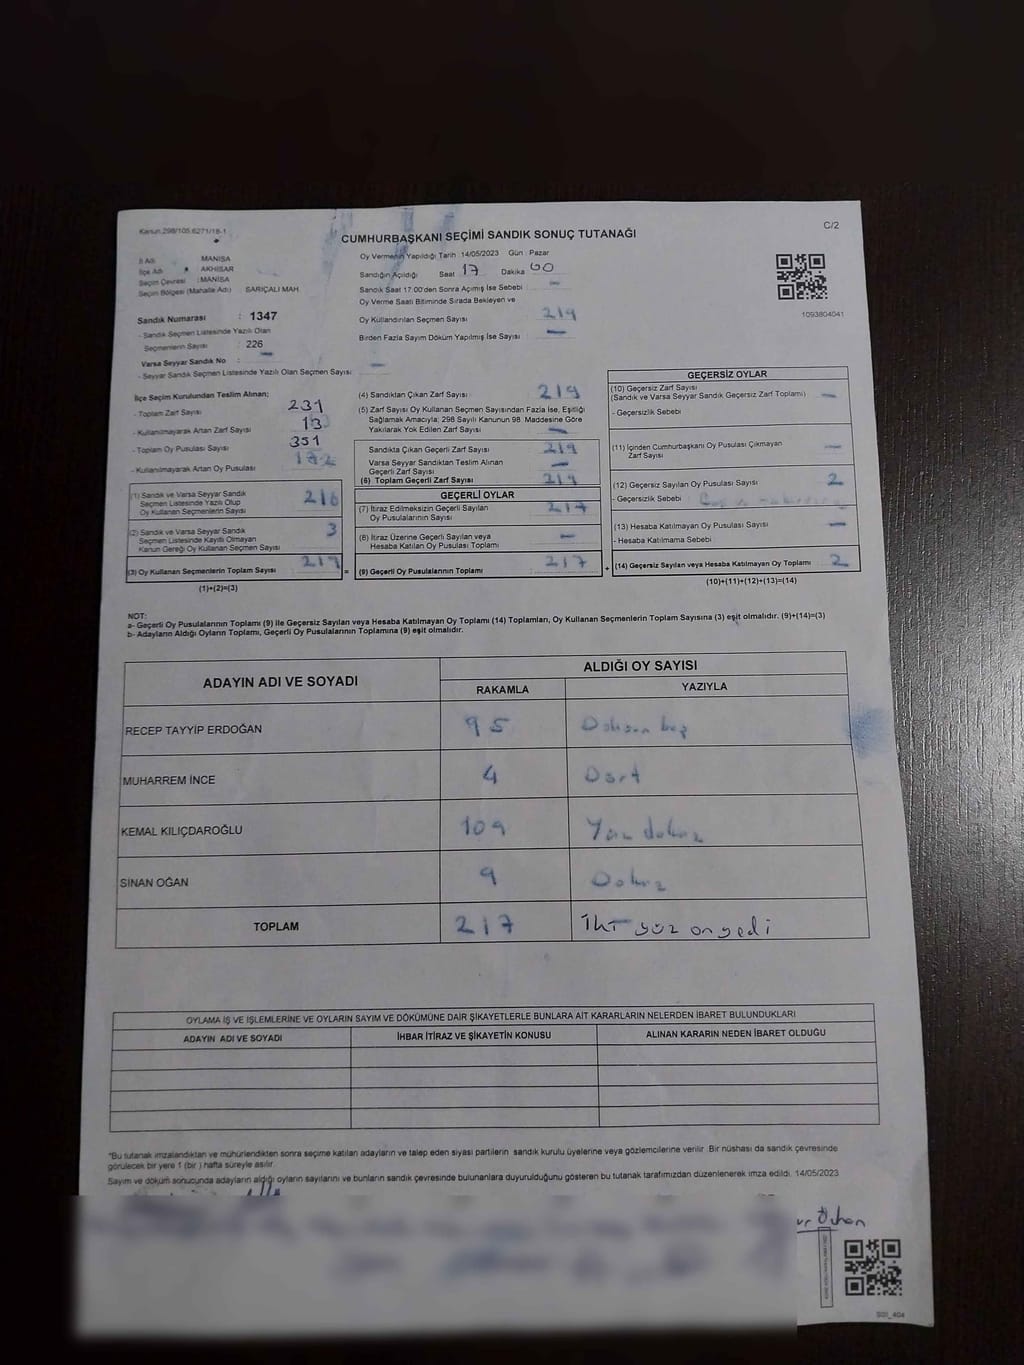 Kanun.298/105.6271/18-1
C/2
CUMHURBAŞKANI SEÇİMİ SANDIK SONUÇ TUTANAĞI
İl Adı : MANİSA
İlçe Adı : AKHİSAR
Seçim Çevresi : MANİSA
Seçim Bölgesi (Mahalle Adı) : SARIÇALI MAH.
Sandık Numarası : 1347
- Sandık Seçmen Listesinde Yazılı Olan
Seçmenlerin Sayısı : 226
Varsa Seyyar Sandık No : -
- Seyyar Sandık Seçmen Listesinde Yazılı Olan Seçmen Sayısı : -
Oy Vermenin Yapıldığı Tarih :14/05/2023 Gün : Pazar
Sandığın Açıldığı Saat 17 Dakika 00
Sandık Saat 17:00'den Sonra Açılmış İse Sebebi : -
Oy Verme Saati Bitiminde Sırada Bekleyen ve
Oy Kullandırılan Seçmen Sayısı : 219
Birden Fazla Sayım Döküm Yapılmış İse Sayısı : -
1093804041
İlçe Seçim Kurulundan Teslim Alınan;
- Toplam Zarf Sayısı : 231
- Kullanılmayarak Artan Zarf Sayısı : 13
- Toplam Oy Pusulası Sayısı : 351
- Kullanılmayarak Artan Oy Pusulası :
(1) Sandık ve Varsa Seyyar Sandık
Seçmen Listesinde Yazılı Olup
Oy Kullanan Seçmenlerin Sayısı : 216
(2) Sandık ve Varsa Seyyar Sandık
Seçmen Listesinde Kayıtlı Olmayan
Kanun Gereği Oy Kullanan Seçmen Sayısı : 3
(3) Oy Kullanan Seçmenlerin Toplam Sayısı : 219
(1)+(2)=(3)
(4) Sandıktan Çıkan Zarf Sayısı : 219
(5) Zarf Sayısı Oy Kullanan Seçmen Sayısından Fazla İse, Eşitliği
Sağlamak Amacıyla; 298 Sayılı Kanunun 98. Maddesine Göre
Yakılarak Yok Edilen Zarf Sayısı : -
Sandıkta Çıkan Geçerli Zarf Sayısı : 219
Varsa Seyyar Sandıktan Teslim Alınan
Geçerli Zarf Sayısı : -
(6) Toplam Geçerli Zarf Sayısı : 219
GEÇERLİ OYLAR
(7) İtiraz Edilmeksizin Geçerli Sayılan
Oy Pusulalarının Sayısı : 217
(8) İtiraz Üzerine Geçerli Sayılan veya
Hesaba Katılan Oy Pusulası Toplamı : -
= (9) Geçerli Oy Pusulalarının Toplamı : 217
GEÇERSİZ OYLAR
(10) Geçersiz Zarf Sayısı
(Sandık ve Varsa Seyyar Sandık Geçersiz Zarf Toplamı) : -
- Geçersizlik Sebebi :
(11) İçinden Cumhurbaşkanı Oy Pusulası Çıkmayan
Zarf Sayısı : -
(12) Geçersiz Sayılan Oy Pusulası Sayısı : 2
- Geçersizlik Sebebi :
(13) Hesaba Katılmayan Oy Pusulası Sayısı : -
- Hesaba Katılmama Sebebi :
+ (14) Geçersiz Sayılan veya Hesaba Katılmayan Oy Toplamı : 2
(10)+(11)+(12)+(13)=(14)
NOT:
a- Geçerli Oy Pusulalarının Toplamı (9) ile Geçersiz Sayılan veya Hesaba Katılmayan Oy Toplamı (14) Toplamları, Oy Kullanan Seçmenlerin Toplam Sayısına (3) eşit olmalıdır. (9)+(14)=(3)
b- Adayların Aldığı Oyların Toplamı, Geçerli Oy Pusulalarının Toplamına (9) eşit olmalıdır.
ADAYIN ADI VE SOYADI
ALDIĞI OY SAYISI
RAKAMLA YAZIYLA
RECEP TAYYİP ERDOĞAN 95 Doksan beş
MUHARREM İNCE 4 Dört
KEMAL KILIÇDAROĞLU 109 Yüz dokuz
SİNAN OĞAN 9 Dokuz
TOPLAM 217 İki yüz onyedi
OYLAMA İŞ VE İŞLEMLERİNE VE OYLARIN SAYIM VE DÖKÜMÜNE DAİR ŞİKAYETLERLE BUNLARA AİT KARARLARIN NELERDEN İBARET BULUNDUKLARI
ADAYIN ADI VE SOYADI İHBAR İTİRAZ VE ŞİKAYETİN KONUSU ALINAN KARARIN NEDEN İBARET OLDUĞU
*Bu tutanak imzalandıktan ve mühürlendikten sonra seçime katılan adayların ve talep eden siyasi partilerin sandık kurulu üyelerine veya gözlemcilerine verilir. Bir nüshası da sandık çevresinde
görülecek bir yere 1 (bir) hafta süreyle asılır.
Sayım ve döküm sonucunda adayların aldığı oyların sayılarını ve bunların sandık çevresinde bulunanlara duyurulduğunu gösteren bu tutanak tarafımızdan düzenlenerek imza edildi. 14/05/2023